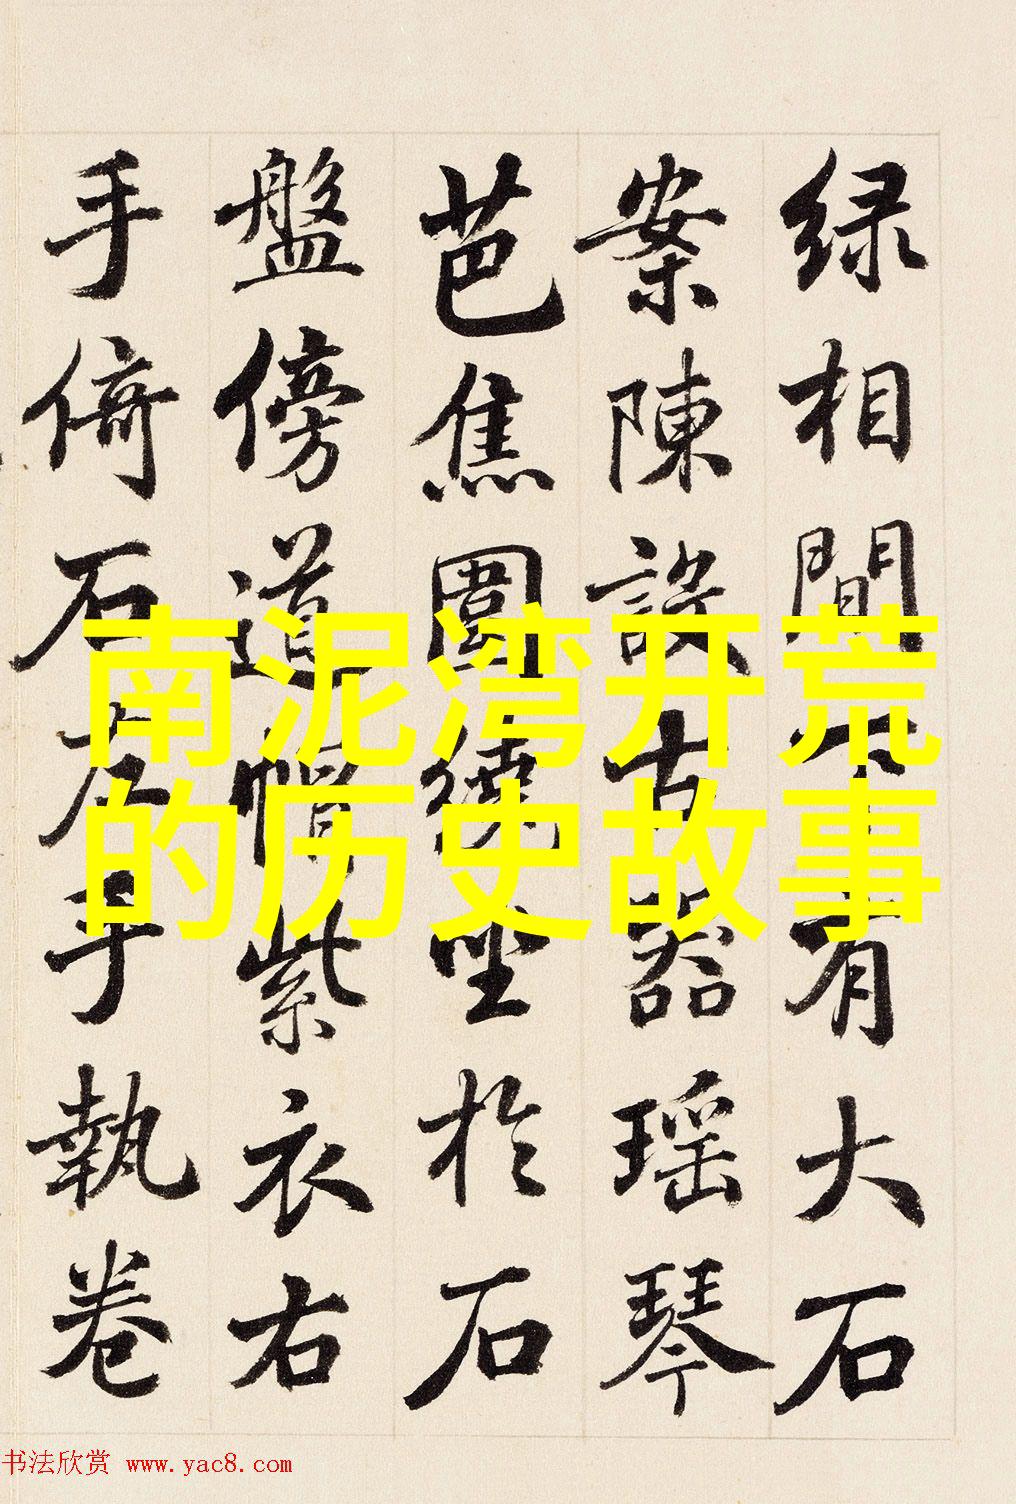 綠相間下有大石
案陳設古器瑶琴
芭焦圍繞坐於石
盤傍道帽紫衣右
手倚石左手執卷
南泥湾开荒
的历史故事
书法欣赏 www.yac8.com